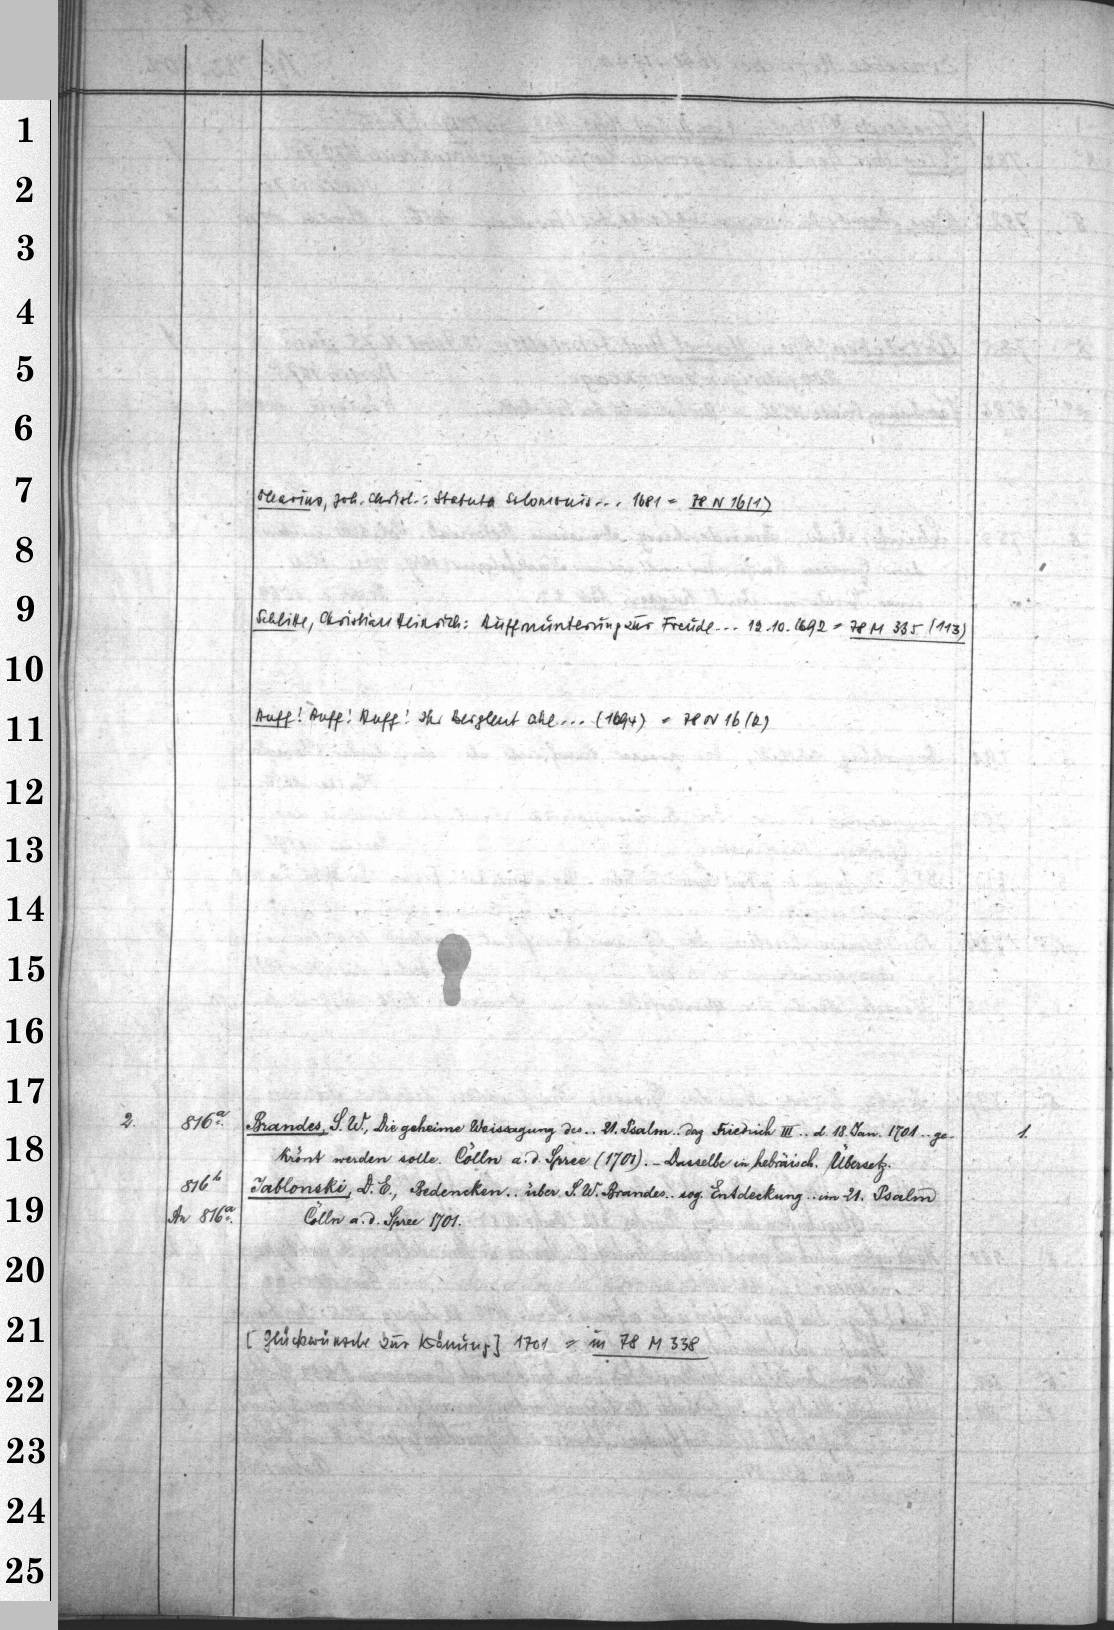 1
2
3
4
5
6
7
Olearius, Joh. Christ.: Statuta Salomonis... 1681 = 78 N 16(1)
8
9
Schlitte, Christian Heinrich: Auffmunterung zur Freude... 12.10.1692 = 78 M 335 (113)
10
11
Auff! Auff! Auff! Ihr Bergleut alle... (1694) = 78 N 16(2)
12
13
14
15
16
17
2. 816a. Brandes, S. W., Die geheime Weissagung des.. 21. Psalm.. daß Friedrich III.. d. 18. Jan. 1701.. ge- 1.
18
krönt werden solle. Cölln a. d. Spree (1701). – Dasselbe in hebräisch. Übersetz.
816b Jablonski, D. E., Bedencken.. über S. W. Brandes.. sog. Entdeckung.. im 21. Psalm
19
An 816a. Cölln a. d. Spree 1701.
20
21
[Glückwünsche zur Krönung] 1701 = in 78 M 338
22
23
24
25